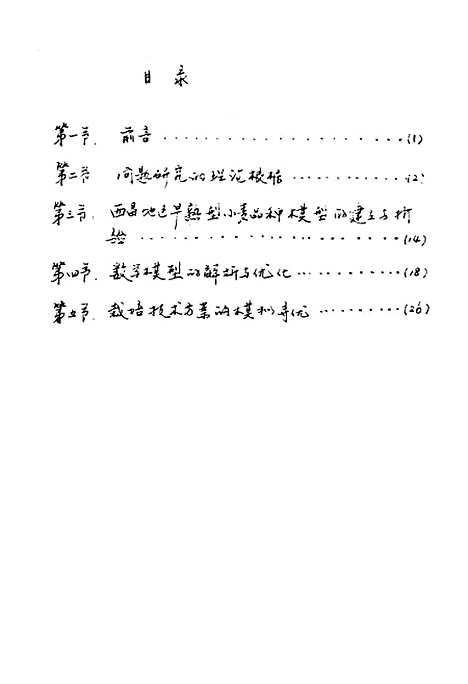 目 录
第一节. 前言 ...................(1)
第二节 问题研究的理论根据 ............(2)
第三节. 西昌地区早熟型小麦品种模型的建立与折
验 ...................(14)
第四节. 数学模型的解析与优化 ............(18)
第五节. 栽培技术方案的模拟寻优 ............(26)